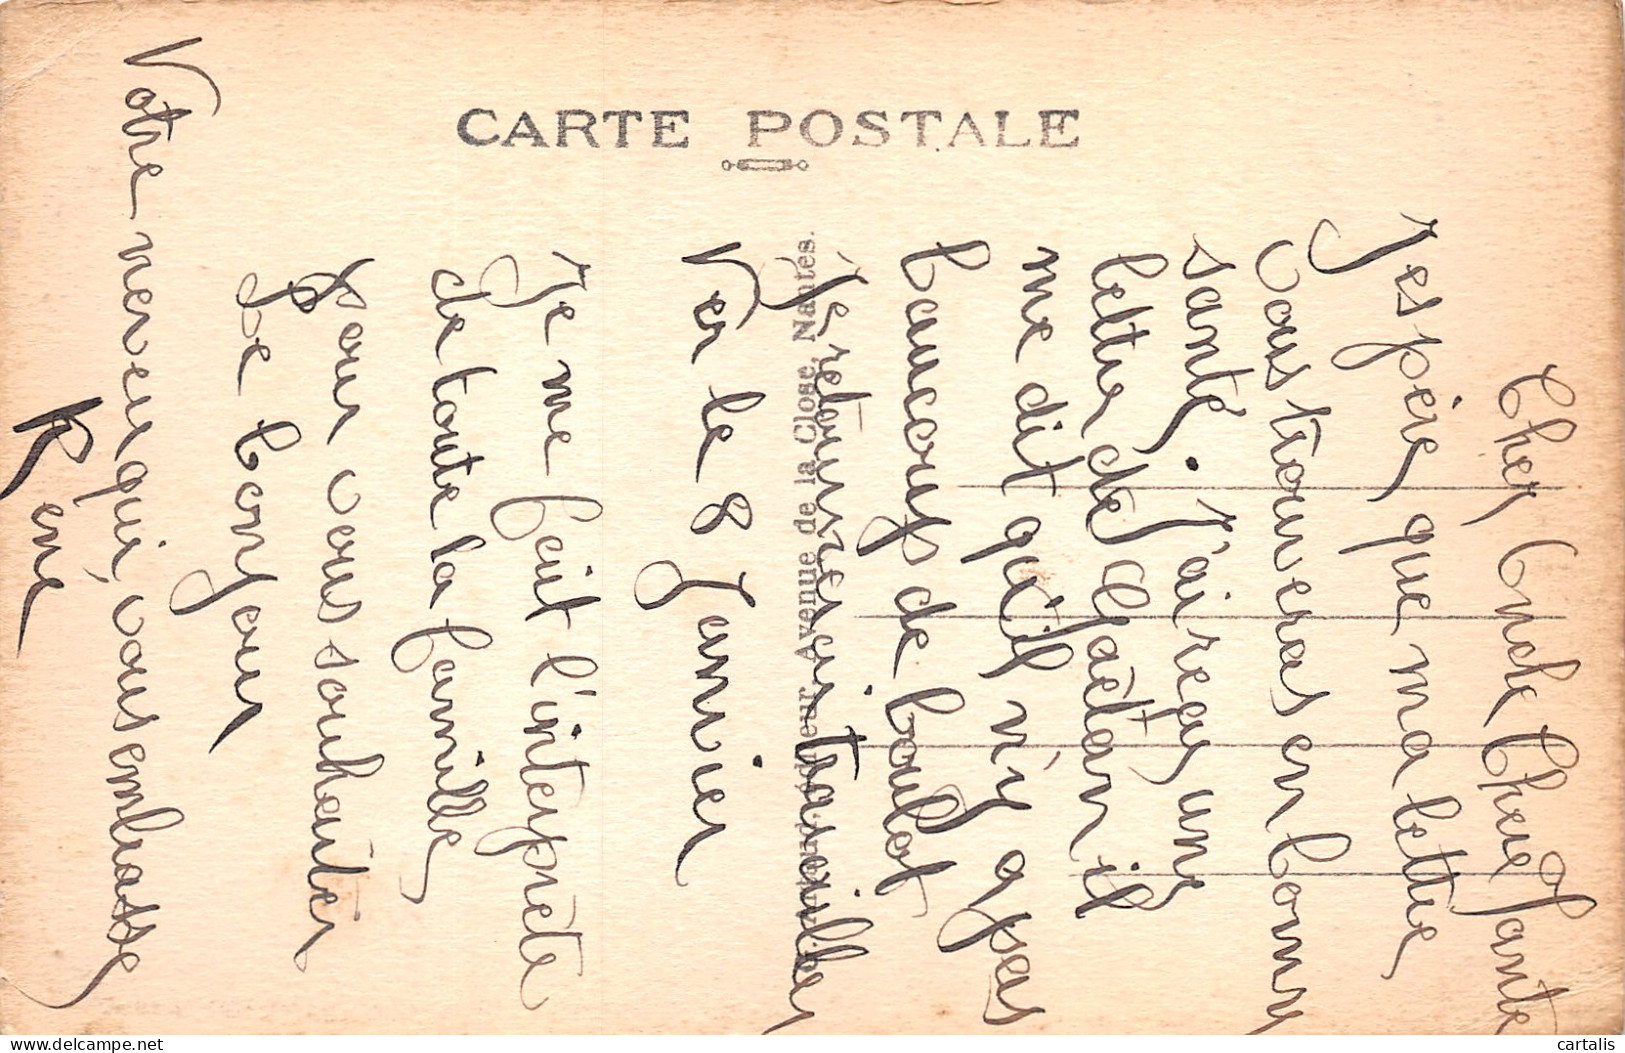 CARTE POSTALE
Avenue de la Close, Nantes.
Cher Oncle Chere Tante
J'espère que ma lettre
vous trouveras en bonne
santé. J'ai reçu une
lettre de Gaëtan il
me dit qu'il n'y a pas
baucoup de boulot
Je retournerais travailler
Ver le 8 Janvier
Je me fait l'interprète
de toute la famille
pour vous souhaiter
Le bonjour
Votre neveu qui vous embrasse
René
delcampe.net
cartalis